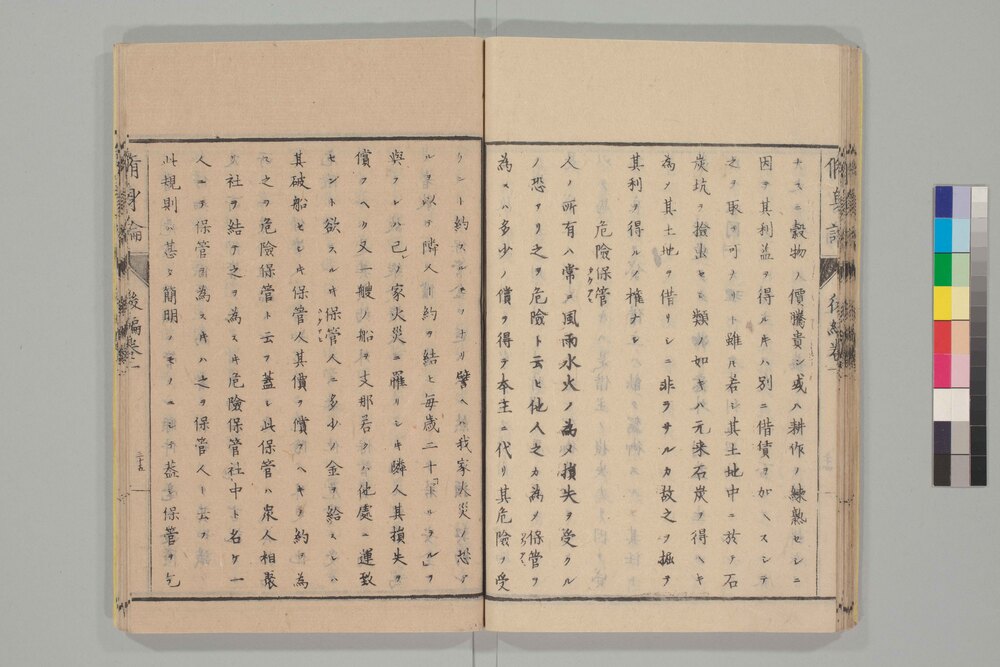 大ヒニ穀物ノ價騰貴シ或ハ耕作ノ練熟セシニ
因テ其利益ヲ得ルキハ別ニ借債ヲ加ヘスシテ
之ヲ取テ可ナリト雖モ若シ其土地中ニ於テ石
炭坑ヲ撿出セシ類ノ如キハ元来石炭ヲ得ヘキ
為メノ其土地ヲ借リシニ非ヲサルカ故之ヲ掘テ
其利ヲ得ルノ權ナシ
危險保管
人ノ所有ハ常ニ風雨水火ノ為メ損失ヲ受クル
ノ恐アリ之ヲ危險ト云ヒ他人之カ為メ保管ヲ
為スハ多少ノ償ヲ得テ本主ニ代リ其危險ヲ受
ケント約スルモノナリ譬ヘハ我家火災ノ恐ア
ルヲ以テ隣人ト約ヲ結ヒ毎歳二十「ドルラル」ヲ
與フレハ己ノ家火災ニ罹リシキ隣人其損失ヲ
償フヘク又一艘ノ船ヲ支那若クハ他處ニ運致
セント欲スルキ保管人ニ多少ノ金ヲ給スレハ
其破船セシキ保管人其價ヲ償フヘキノ約ヲ為
ス之ヲ危險保管ト云フ蓋シ此保管ハ衆人相聚
リ社ヲ結テ之ヲ為スキ危險保管社中ト名ケ一
人ニテ保管ヲ為スキハ之ヲ保管人ト云フ
此規則ハ甚タ簡明ノモノニシテ蓋シ保管ヲ乞
脩身論
後編卷一
二十五